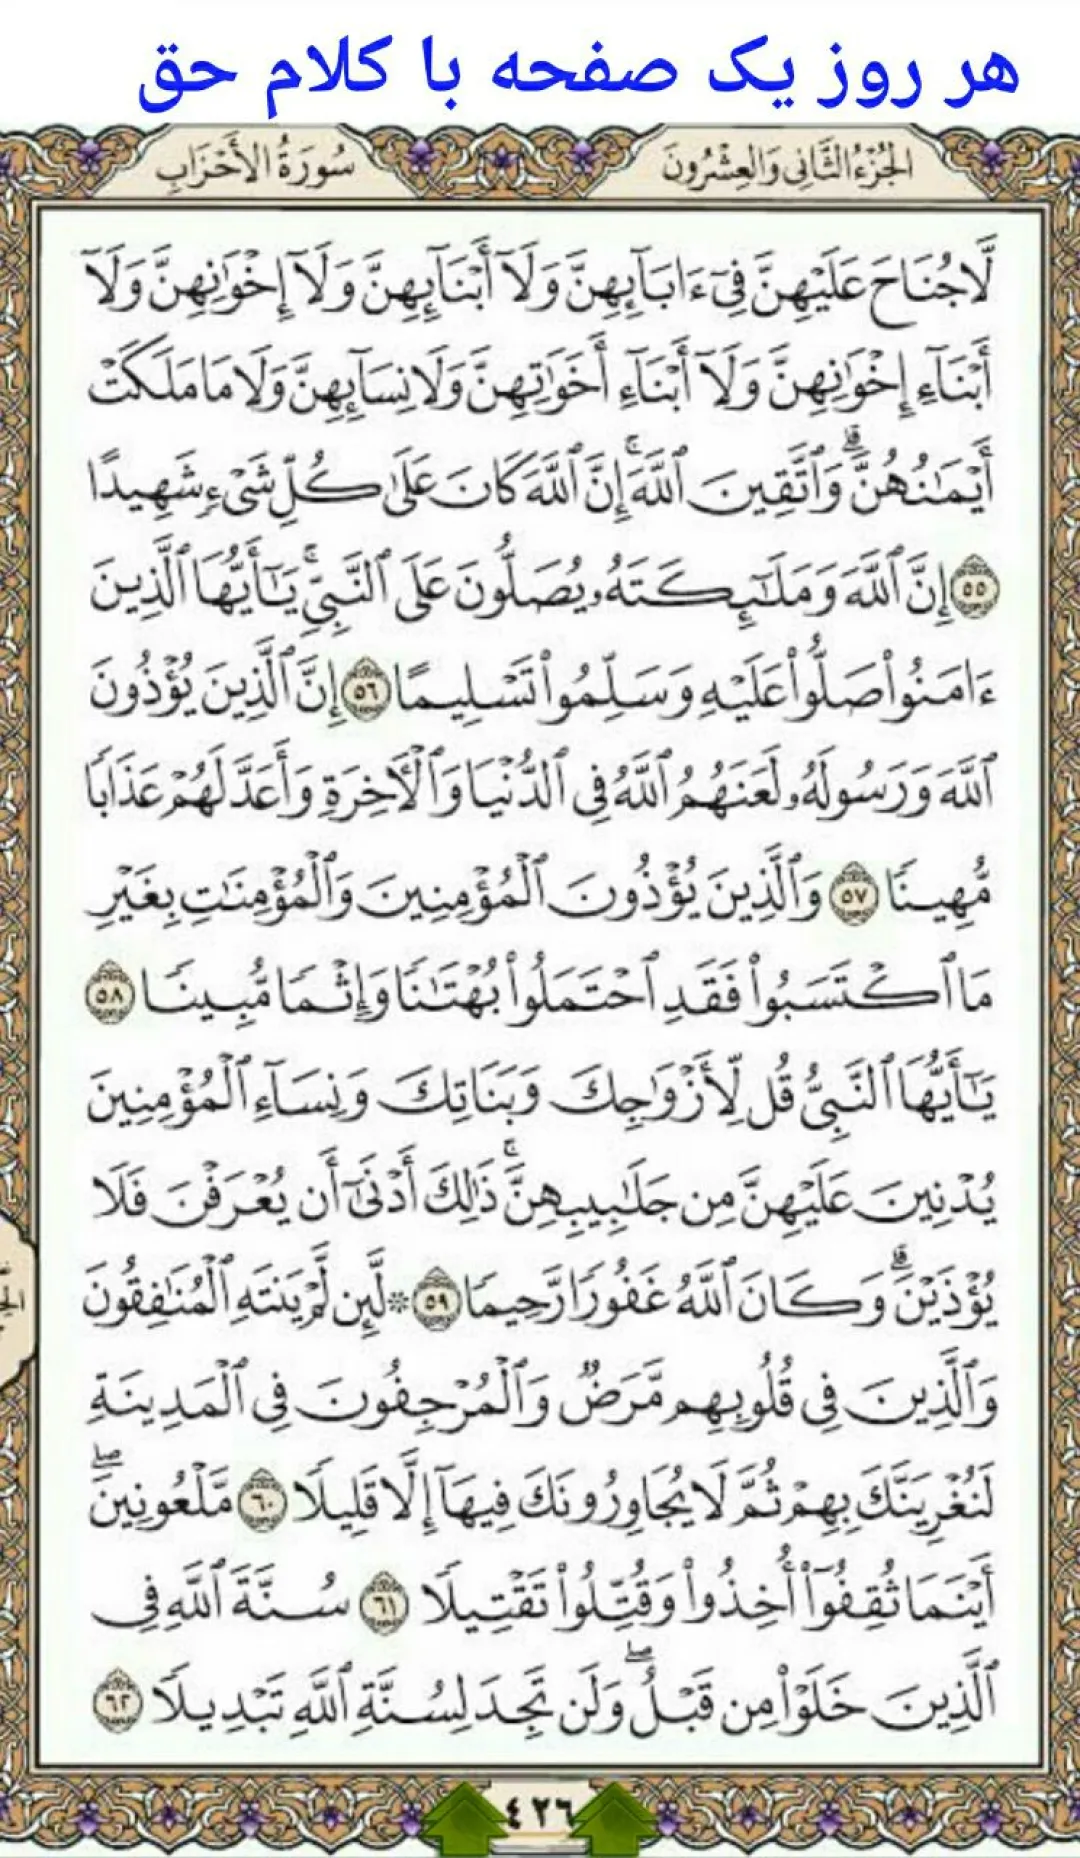 هر روز یک صفحه با کلام حق
الجُزْءُ الثَّانِي وَالعِشْرُونَ
سُورَةُ الأَحْزَابِ
لَّا جُنَاحَ عَلَيْهِنَّ فِىٓ ءَابَآئِهِنَّ وَلَآ أَبْنَآئِهِنَّ وَلَآ إِخْوَٰنِهِنَّ وَلَآ
أَبْنَآءِ إِخْوَٰنِهِنَّ وَلَآ أَبْنَآءِ أَخَوَٰتِهِنَّ وَلَا نِسَآئِهِنَّ وَلَا مَا مَلَكَتْ
أَيْمَٰنُهُنَّ ۗ وَٱتَّقِينَ ٱللَّهَ ۚ إِنَّ ٱللَّهَ كَانَ عَلَىٰ كُلِّ شَىْءٍ شَهِيدًا
٥٥ إِنَّ ٱللَّهَ وَمَلَٰٓئِكَتَهُۥ يُصَلُّونَ عَلَى ٱلنَّبِىِّ ۚ يَٰٓأَيُّهَا ٱلَّذِينَ
ءَامَنُوا۟ صَلُّوا۟ عَلَيْهِ وَسَلِّمُوا۟ تَسْلِيمًا ٥٦ إِنَّ ٱلَّذِينَ يُؤْذُونَ
ٱللَّهَ وَرَسُولَهُۥ لَعَنَهُمُ ٱللَّهُ فِى ٱلدُّنْيَا وَٱلْءَاخِرَةِ وَأَعَدَّ لَهُمْ عَذَابًا
مُّهِينًا ٥٧ وَٱلَّذِينَ يُؤْذُونَ ٱلْمُؤْمِنِينَ وَٱلْمُؤْمِنَٰتِ بِغَيْرِ
مَا ٱكْتَسَبُوا۟ فَقَدِ ٱحْتَمَلُوا۟ بُهْتَٰنًا وَإِثْمًا مُّبِينًا ٥٨
يَٰٓأَيُّهَا ٱلنَّبِىُّ قُل لِّأَزْوَٰجِكَ وَبَنَاتِكَ وَنِسَآءِ ٱلْمُؤْمِنِينَ
يُدْنِينَ عَلَيْهِنَّ مِن جَلَٰبِيبِهِنَّ ۚ ذَٰلِكَ أَدْنَىٰٓ أَن يُعْرَفْنَ فَلَا
يُؤْذَيْنَ ۗ وَكَانَ ٱللَّهُ غَفُورًا رَّحِيمًا ٥٩ * لَّئِن لَّمْ يَنتَهِ ٱلْمُنَٰفِقُونَ
وَٱلَّذِينَ فِى قُلُوبِهِم مَّرَضٌ وَٱلْمُرْجِفُونَ فِى ٱلْمَدِينَةِ
لَنُغْرِيَنَّكَ بِهِمْ ثُمَّ لَا يُجَاوِرُونَكَ فِيهَآ إِلَّا قَلِيلًا ٦٠ مَّلْعُونِينَ ۖ
أَيْنَمَا ثُقِفُوٓا۟ أُخِذُوا۟ وَقُتِّلُوا۟ تَقْتِيلًا ٦١ سُنَّةَ ٱللَّهِ فِى
ٱلَّذِينَ خَلَوْا۟ مِن قَبْلُ ۖ وَلَن تَجِدَ لِسُنَّةِ ٱللَّهِ تَبْدِيلًا ٦٢
٤٢٦